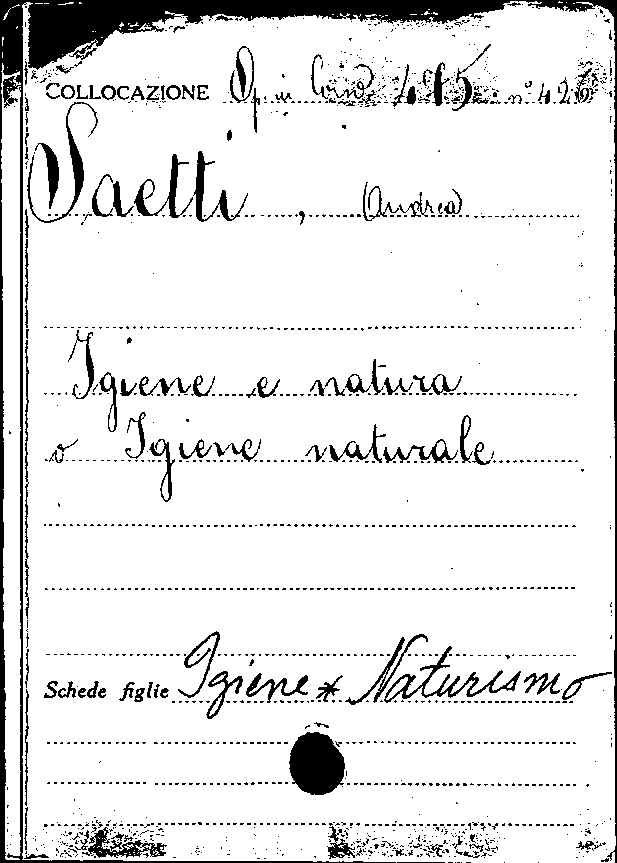 COLLOCAZIONE Op. in 415 n° 426
Saetti, Andrea
Igiene e natura
o Igiene naturale
Schede figlie Igiene * Naturismo